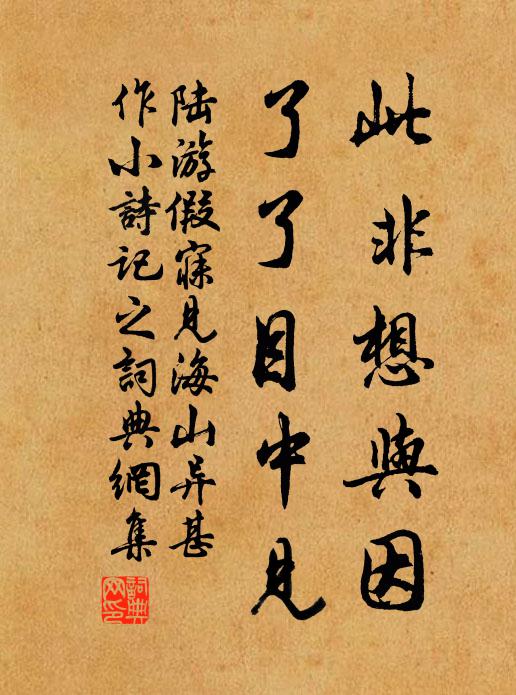 此非想與因
了了目中見
陆游假寐見海山异甚
作小詩記之詞典網集
詞典
网印